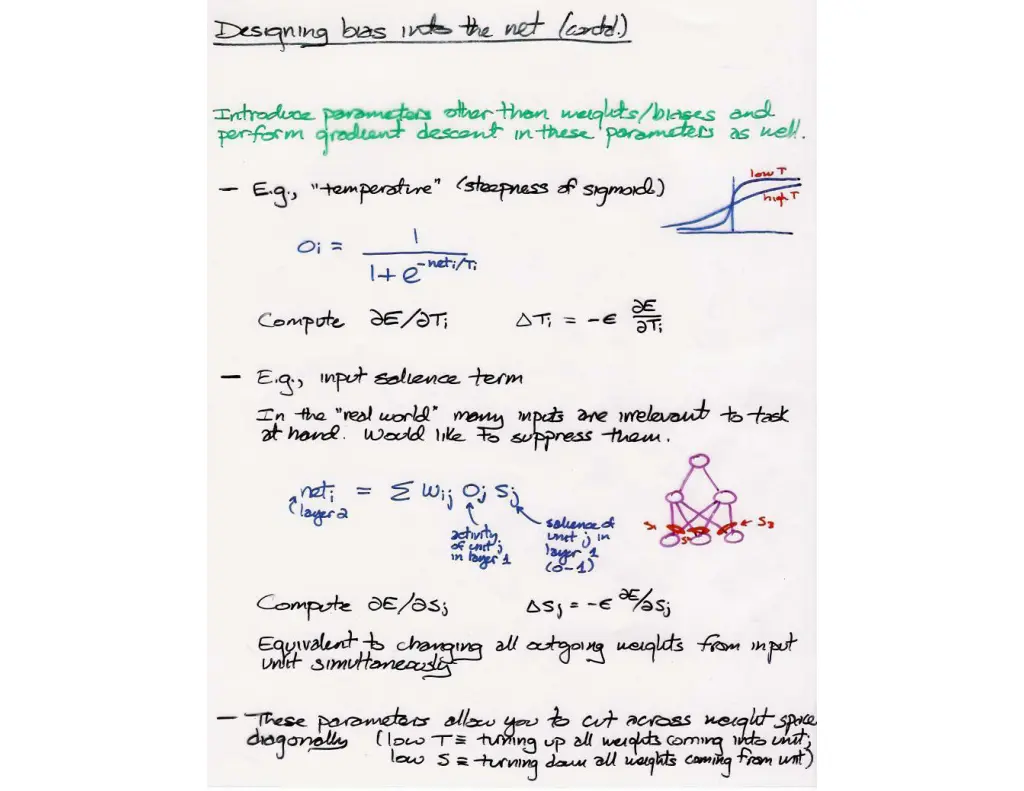 Designing bias into the net (contd.)
Introduce parameters other than weights/biases and
perform gradient descent in these parameters as well.
— E.g., "temperature" (steepness of sigmoid)
low T
high T
Oi = 1 / (1 + e^(-neti/Ti))
Compute ∂E/∂Ti    ΔTi = -ϵ ∂E/∂Ti
— E.g., input salience term
In the "real world" many inputs are irrelevant to task
at hand. Would like to suppress them.
neti = Σ Wij Oj Sj
layer 2
activity
of unit j
in layer 1
salience of
unit j in
layer 1
(0-1)
S1
S2
S3
Compute ∂E/∂Sj    ΔSj = -ϵ ∂E/∂Sj
Equivalent to changing all outgoing weights from input
unit simultaneously
— These parameters allow you to cut across weight space
diagonally (low T ≡ turning up all weights coming into unit;
low S ≡ turning down all weights coming from unit)